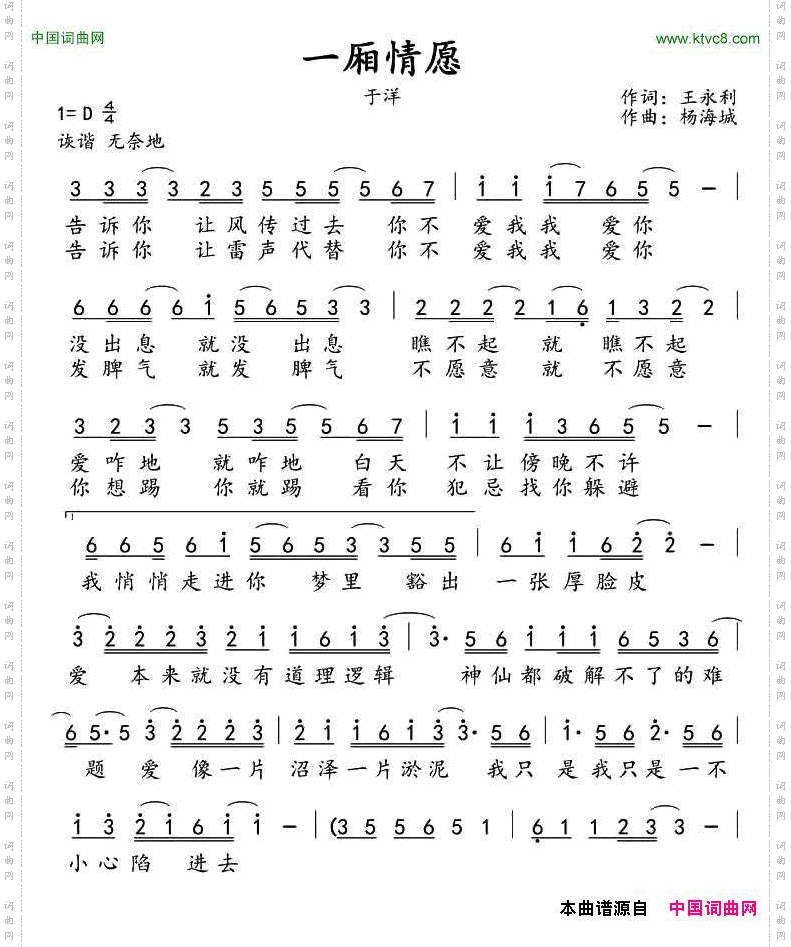 中国词曲网
www.ktvc8.com
一厢情愿
于洋
1= D 4/4
作词：王永利
作曲：杨海城
诙谐 无奈地
3 3 3 3 2 3 5 5 5 5 6 7 | 1 1 1 7 6 5 5 － |
告诉你 让风传过去 你不 爱我我 爱你
告诉你 让雷声代替 你不 爱我我 爱你
6 6 6 6 1 5 6 5 3 3 | 2 2 2 2 1 6 1 3 2 2 |
没出息 就没 出息 瞧不起 就 瞧不起
发脾气 就发 脾气 不愿意 就 不愿意
3 2 3 3 5 3 5 5 6 7 | 1 1 1 3 6 5 5 － |
爱咋地 就咋地 白天 不让傍晚不许
你想踢 你就踢 看你 犯忌找你躲避
1
6 6 5 6 1 5 6 5 3 3 5 5 | 6 1 1 6 2 2 － |
我悄悄走进你 梦里 豁出 一张厚脸皮
3 2 2 2 3 2 1 1 6 1 3 | 3· 5 6 1 1 6 5 3 6
爱 本来就没有道理逻辑 神仙都破解不了的难
6 5· 5 3 2 2 2 3 | 2 1 1 6 1 3 3· 5 6 | 1· 5 6 2· 5 6
题 爱 像一片 沼泽一片淤泥 我只 是我只是一不
1 3 2 1 6 1 1 － | (3 5 5 6 5 1 | 6 1 1 2 3 3 － |
小心陷 进去
本曲谱源自 中国词曲网
词曲网 词曲网 词曲网 词曲网 词曲网 词曲网 词曲网 词曲网